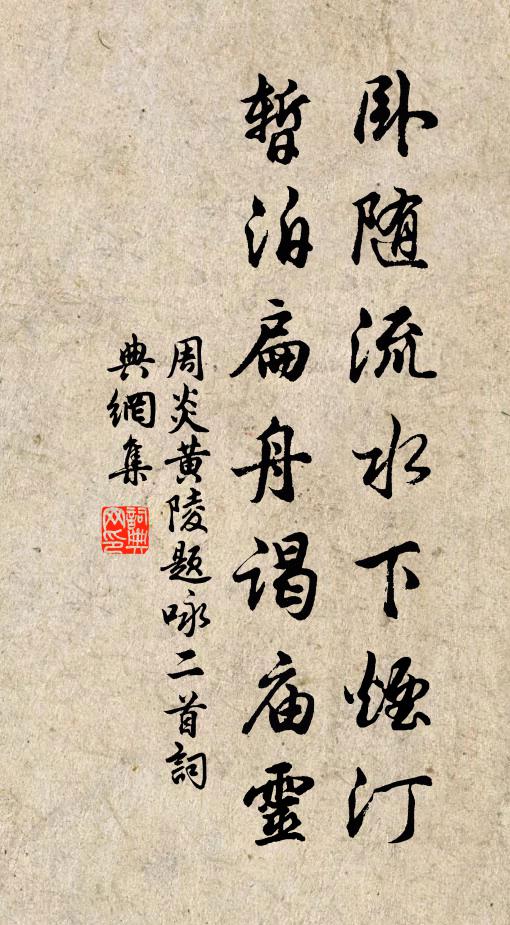 卧随流水下烟汀
暂泊扁舟谒庙靈
周炎黄陵题咏二首詞
典網集
詞典网印